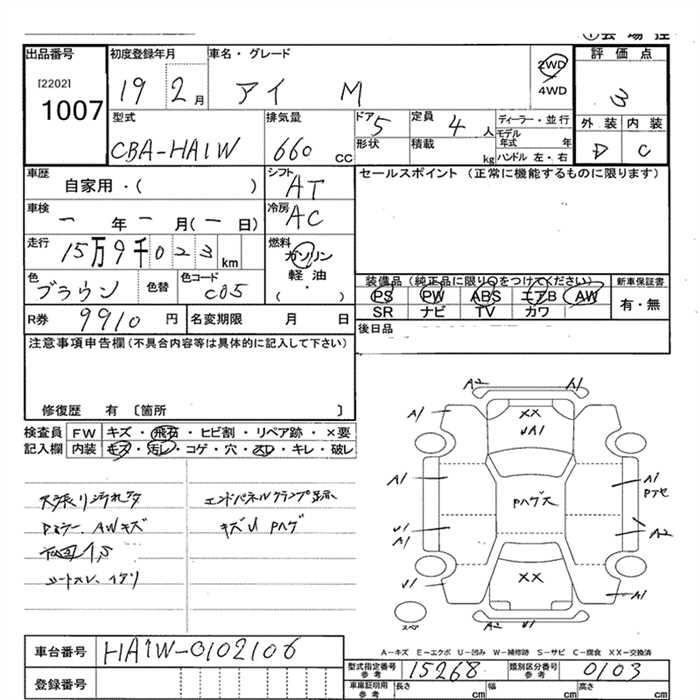 ①会場控
出品番号
[2202]
1007
初度登録年月
19 2月
車名・グレード
アイ M
2WD
4WD
評価点
3
型式
CBA-HA1W
排気量
660 CC
ドア 5
形状
定員 4 人
積載 kg
ディーラー・並行
モデル
年式 年
ハンドル 左・右
外装 内装
D C
車歴
自家用・( )
シフト
AT
車検
一 年 一 月(一 日)
冷房
AC
走行
15万9千023 km
燃料
ガソリン
軽油
( )
色
ブラウン
色替
色コード
C05
セールスポイント (正常に機能するものに限ります)
装備品 (純正品に限り○をつけてください)
新車保証書
PS PW ABS エアB AW
SR ナビ TV カワ
有・無
R券 9910 円
名変期限 月 日
後日品
注意事項申告欄(不具合内容等は具体的に記入して下さい)
修復歴 有 〔箇所 〕
検査員
記入欄
FW キズ・飛石・ヒビ割・リペア跡・×要
内装 キズ・汚レ・コゲ・穴・スレ・キレ・破レ
天張り汚れ
AWキズ
エンドパネルクランプ
キズU Pハゲ
A2 A1
A1
XX
UA1
A1
Pハゲ大
A1
U1
A1
A2
XX
U1
A1
A2 U1
A-キズ E-エクボ U-凹み W-補修跡 S-サビ C-腐食 XX-交換済
車台番号 HA1W-0102106
登録番号
型式指定番号
参考
15268
類別区分番号
参考
0103
車庫証明用
参考
長さ cm 幅 cm 高さ cm